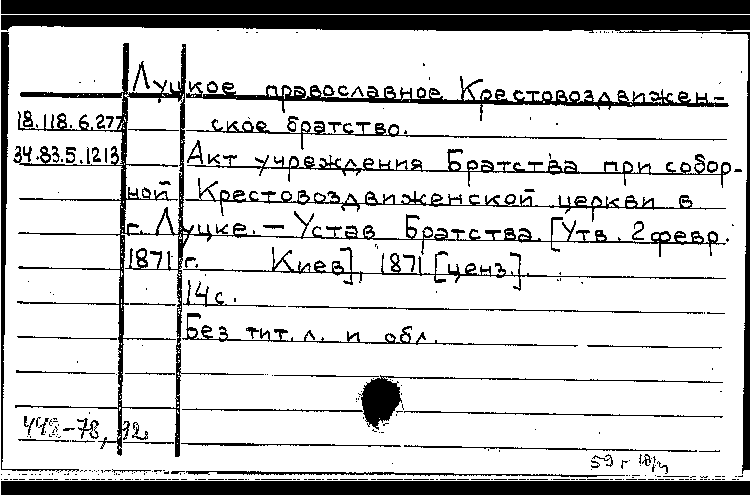 Луцкое православное Крестовоздвижен-
18.118.6.277 ское братство.
34.83.5.1213 Акт учреждения Братства при собор-
ной Крестовоздвиженской церкви в
г. Луцке. — Устав Братства. [Утв. 2 февр.
1871 г. Киев], 1871 [ценз.].
14 с.
Без тит. л. и обл.
442-78, 92.
59 г